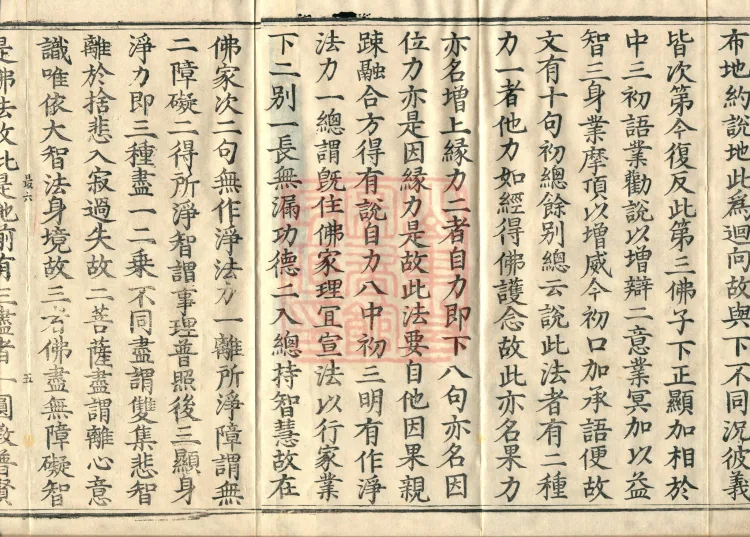 布地約說地此爲迴向故與下不同況彼義
皆次第今復反此第三佛子下正顯加相於
中三初語業勸說以增辯二意業冥加以益
智三身業摩頂以增威今初口加承語便故
文有十句初總餘別總云說此法者有二種
力一者他力如經得佛護念故此亦名果力
亦名增上縁力二者自力即下八句亦名因
位力亦是因縁力是故此法要自他因果親
踈融合方得有說自力八中初三明有作淨
法力一總謂旣住佛家理宜宣法以行家業
下二別一長無漏功德二入總持智慧故在
佛家次二句無作淨法力一離所淨障謂無
二障礙二得所淨智謂事理普照後三顯身
淨力即三種盡一二乘不同盡謂雙集悲智
離於捨悲入寂過失故二菩薩盡謂離心意
識唯依大智法身境故三者佛盡無障礙智
最六
五
是佛法故此是地前有三盡者一圓教普賢